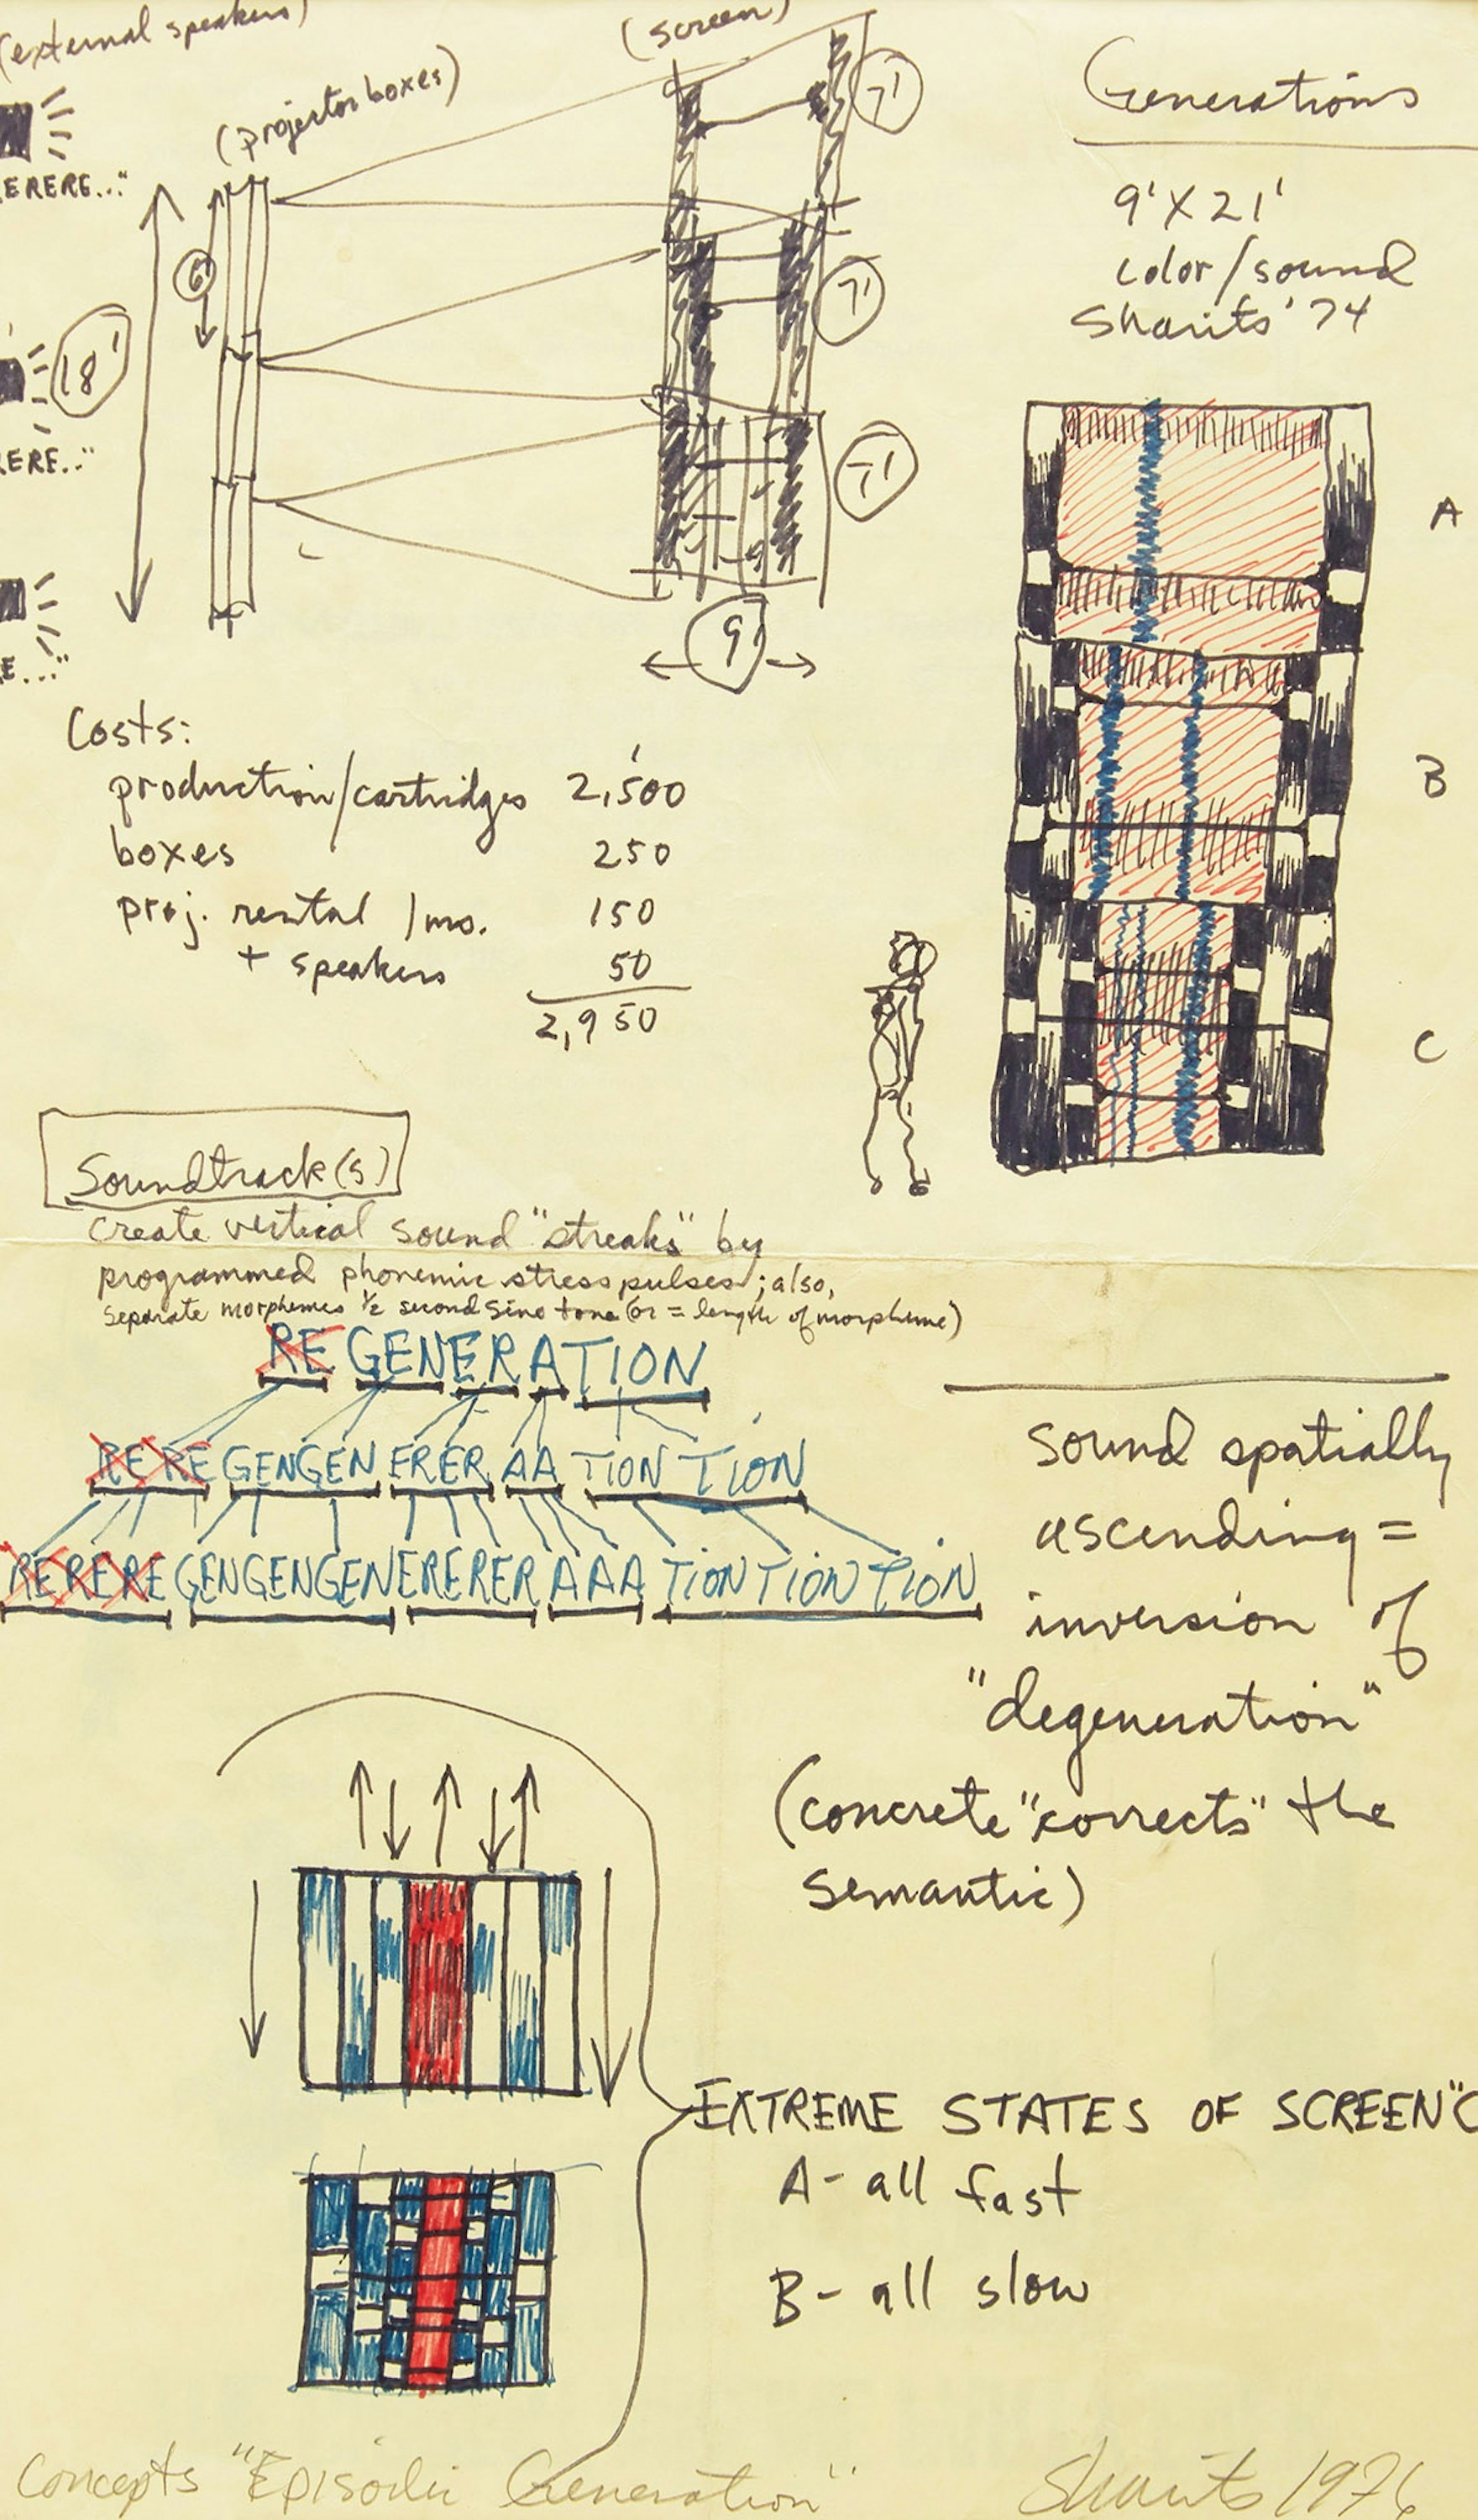 (external speakers)
(screen)
(projector boxes)
7'
Generations
ERERE..."
9' X 21'
color/sound
Sharits '74
6'
7'
18'
RERE.."
7'
A
E..."
9'
Costs:
production/cartridges 2,500
boxes 250
proj. rental /mo. 150
+ speakers 50
2,950
B
C
Soundtrack(s)
create vertical sound "streaks" by
programmed phonemic stress pulses; also,
separate morphemes ½ second sine tone (or = length of morpheme)
RE GENERATION
RE RE GENGEN ERER AA TION TION
RERERE GENGENGEN ERERER AAA TION TION TION
sound spatially
ascending =
inversion of
"degeneration"
(concrete "corrects" the
semantic)
EXTREME STATES OF SCREEN "C
A- all fast
B- all slow
Concepts "Episodic Generation"
Sharits 1976